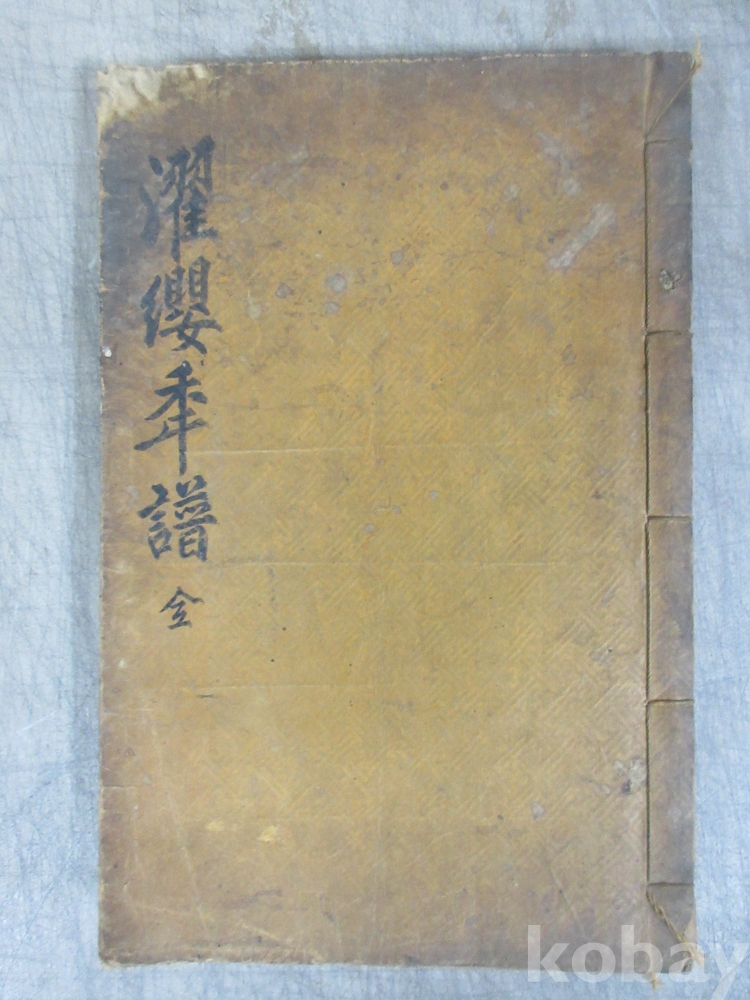 濯纓年譜 全
kobay